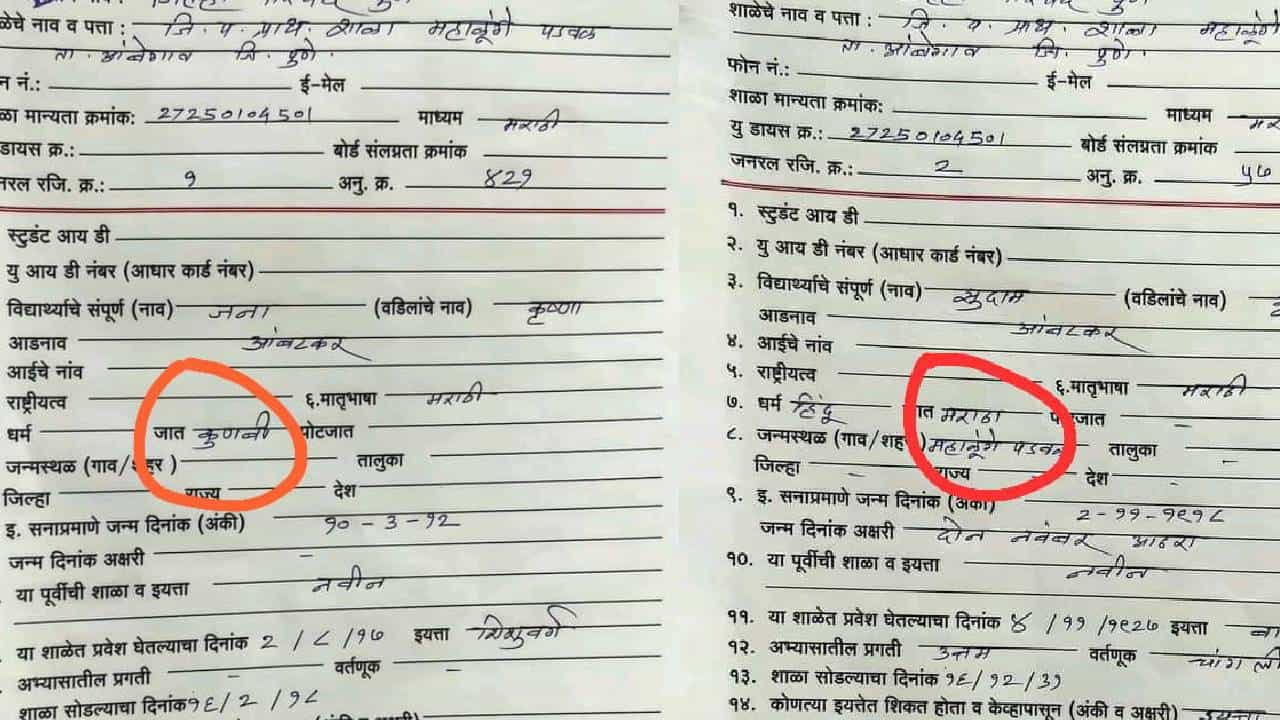 ळेचे नाव व पत्ता : जि. प. प्राथ. शाळा महाळूंगे पडवळ
ता. आंबेगाव जि. पुणे.
न नं.: ई-मेल
ळा मान्यता क्रमांक: 27250104501 माध्यम मराठी
डायस क्र.: बोर्ड संलग्नता क्रमांक
नरल रजि. क्र.: १ अनु. क्र. ४२१
स्टुडंट आय डी
यु आय डी नंबर (आधार कार्ड नंबर)
विद्यार्थ्याचे संपूर्ण (नाव) जना (वडिलांचे नाव) कृष्णा
आडनाव आंबटकर
आईचे नांव
राष्ट्रीयत्व ६.मातृभाषा मराठी
धर्म जात कुणबी पोटजात
जन्मस्थळ (गाव/शहर ) तालुका
जिल्हा राज्य देश
इ. सनाप्रमाणे जन्म दिनांक (अंकी) १०-३-१२
जन्म दिनांक अक्षरी -
या पूर्वीची शाळा व इयत्ता नवीन
या शाळेत प्रवेश घेतल्याचा दिनांक २/८/१७ इयत्ता शिशुवर्ग
अभ्यासातील प्रगती - वर्तणूक -
शाळा सोडल्याचा दिनांक १६/२/१८
शाळेचे नाव व पत्ता : जि. प. प्राथ. शाळा महाळूंगे
ता. आंबेगाव जि. पुणे.
फोन नं.: ई-मेल
शाळा मान्यता क्रमांक: माध्यम
यु डायस क्र.: 27250104501 बोर्ड संलग्नता क्रमांक
जनरल रजि. क्र.: २ अनु. क्र. ५७
१. स्टुडंट आय डी
२. यु आय डी नंबर (आधार कार्ड नंबर)
३. विद्यार्थ्याचे संपूर्ण (नाव) सुदाम (वडिलांचे नाव)
आडनाव आंबटकर
४. आईचे नांव
५. राष्ट्रीयत्व ६.मातृभाषा मराठी
७. धर्म हिंदू जात मराठा पोटजात -
८. जन्मस्थळ (गाव/शहर) महाळूंगे पडवळ तालुका -
जिल्हा - राज्य - देश -
९. इ. सनाप्रमाणे जन्म दिनांक (अंकी) २-११-१९१८
जन्म दिनांक अक्षरी दोन नवंबर अठरा
१०. या पूर्वीची शाळा व इयत्ता नवीन
११. या शाळेत प्रवेश घेतल्याचा दिनांक ४/११/१९२७ इयत्ता
१२. अभ्यासातील प्रगती उत्तम वर्तणूक चांगली
१३. शाळा सोडल्याचा दिनांक १६/१२/३१
१४. कोणत्या इयत्तेत शिकत होता व केव्हापासून (अंकी व अक्षरी)